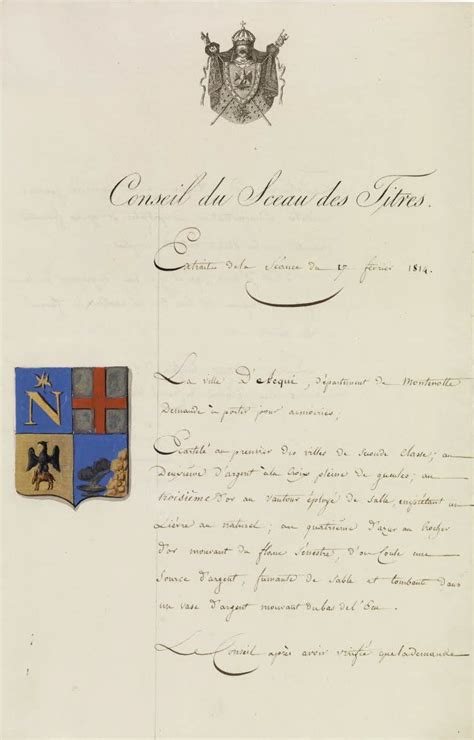 Conseil du Sceau des Titres.
Extrait de la Séance du 17 février 1814.
La ville D'Acqui, département de Montenotte
Demande à porter pour armoiries;
N
Ecartelé au premier des villes de seconde classe; au
Deuxième d'argent à la croix pleine de gueules; au
troisième d'or au vautour éployé de sable, empiétant un
Lièvre au naturel; au quatrième d'azur au Rocher
d'or mouvant du flanc Sénestre, d'où Coule une
Source d'argent, fumante de Sable et tombant dans
un vase d'argent mouvant du bas de l'Ecu.
Le Conseil après avoir vérifié que la demande